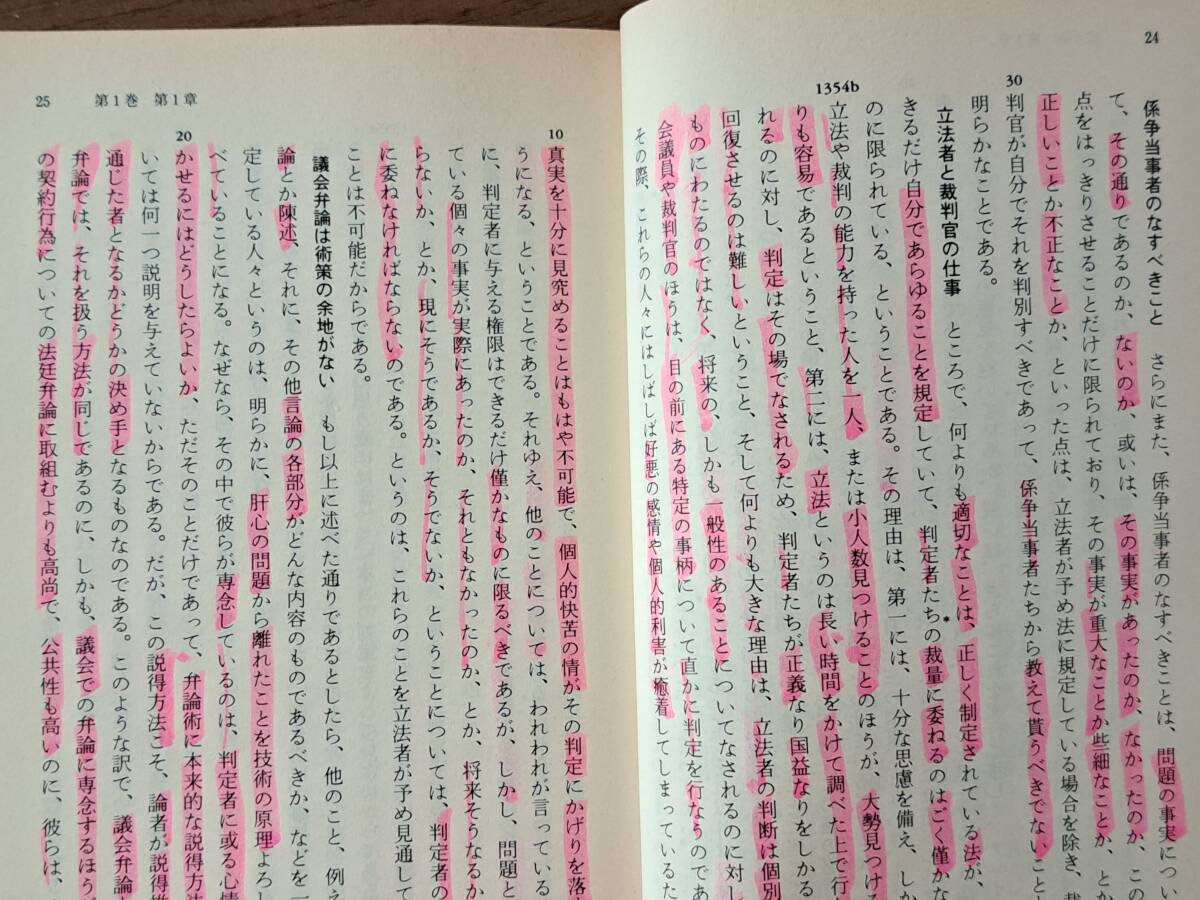 24
係争当事者のなすべきこと　さらにまた、係争当事者のなすべきことは、問題の事実につい
て、その通りであるのか、ないのか、或いは、その事実があったのか、なかったのか、この
点をはっきりさせることだけに限られており、その事実が重大なことか些細なことか、とか
正しいことか不正なことか、といった点は、立法者が予め法に規定している場合を除き、裁
30
判官が自分でそれを判別すべきであって、係争当事者たちから教えて貰うべきでないこと
明らかなことである。
立法者と裁判官の仕事　ところで、何よりも適切なことは、正しく制定されている法が、
きるだけ自分であらゆることを規定していて、判定者たちの*裁量に委ねるのはごく僅かな
のに限られている、ということである。その理由は、第一には、十分な思慮を備え、しか
1354b
立法や裁判の能力を持った人を一人、または小人数見つけることのほうが、大勢見つける
りも容易であるということ、第二には、立法というのは長い時間をかけて調べた上で行
れるのに対し、判定はその場でなされるため、判定者たちが正義なり国益なりをしかる
回復させるのは難しいということ、そして何よりも大きな理由は、立法者の判断は個別
ものにわたるのではなく、将来の、しかも一般性のあることについてなされるのに対し
会議員や裁判官のほうは、目の前にある特定の事柄について直かに判定を行なうのであ
その際、これらの人々にはしばしば好悪の感情や個人的利害が癒着してしまっているた
25　第1巻　第1章
10
真実を十分に見究めることはもはや不可能で、個人的快苦の情がその判定にかげりを落
うになる、ということである。それゆえ、他のことについては、われわれが言っている
に、判定者に与える権限はできるだけ僅かなものに限るべきであるが、しかし、問題と
ている個々の事実が実際にあったのか、それともなかったのか、とか、将来そうなるか
らないか、とか、現にそうであるか、そうでないか、ということについては、判定者の
に委ねなければならないのである。というのは、これらのことを立法者が予め見通して
ことは不可能だからである。
議会弁論は術策の余地がない　もし以上に述べた通りであるとしたら、他のこと、例え
論とか陳述、それに、その他言論の各部分がどんな内容のものであるべきか、などを一
定している人々というのは、明らかに、肝心の問題から離れたことを技術の原理よろし
べていることになる。なぜなら、その中で彼らが専念しているのは、判定者に或る心情
20
かせるにはどうしたらよいか、ただそのことだけであって、弁論術に本来的な説得方法
いては何一つ説明を与えていないからである。だが、この説得方法こそ、論者が説得推
通じた者となるかどうかの決め手となるものなのである。このような訳で、議会弁論
弁論では、それを扱う方法が同じであるのに、しかも、議会での弁論に専念するほう
の契約行為についての法廷弁論に取組むよりも高尚で、公共性も高いのに、彼らは、